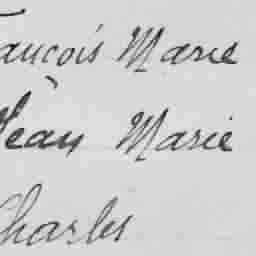 François Marie
Jean Marie
Charles